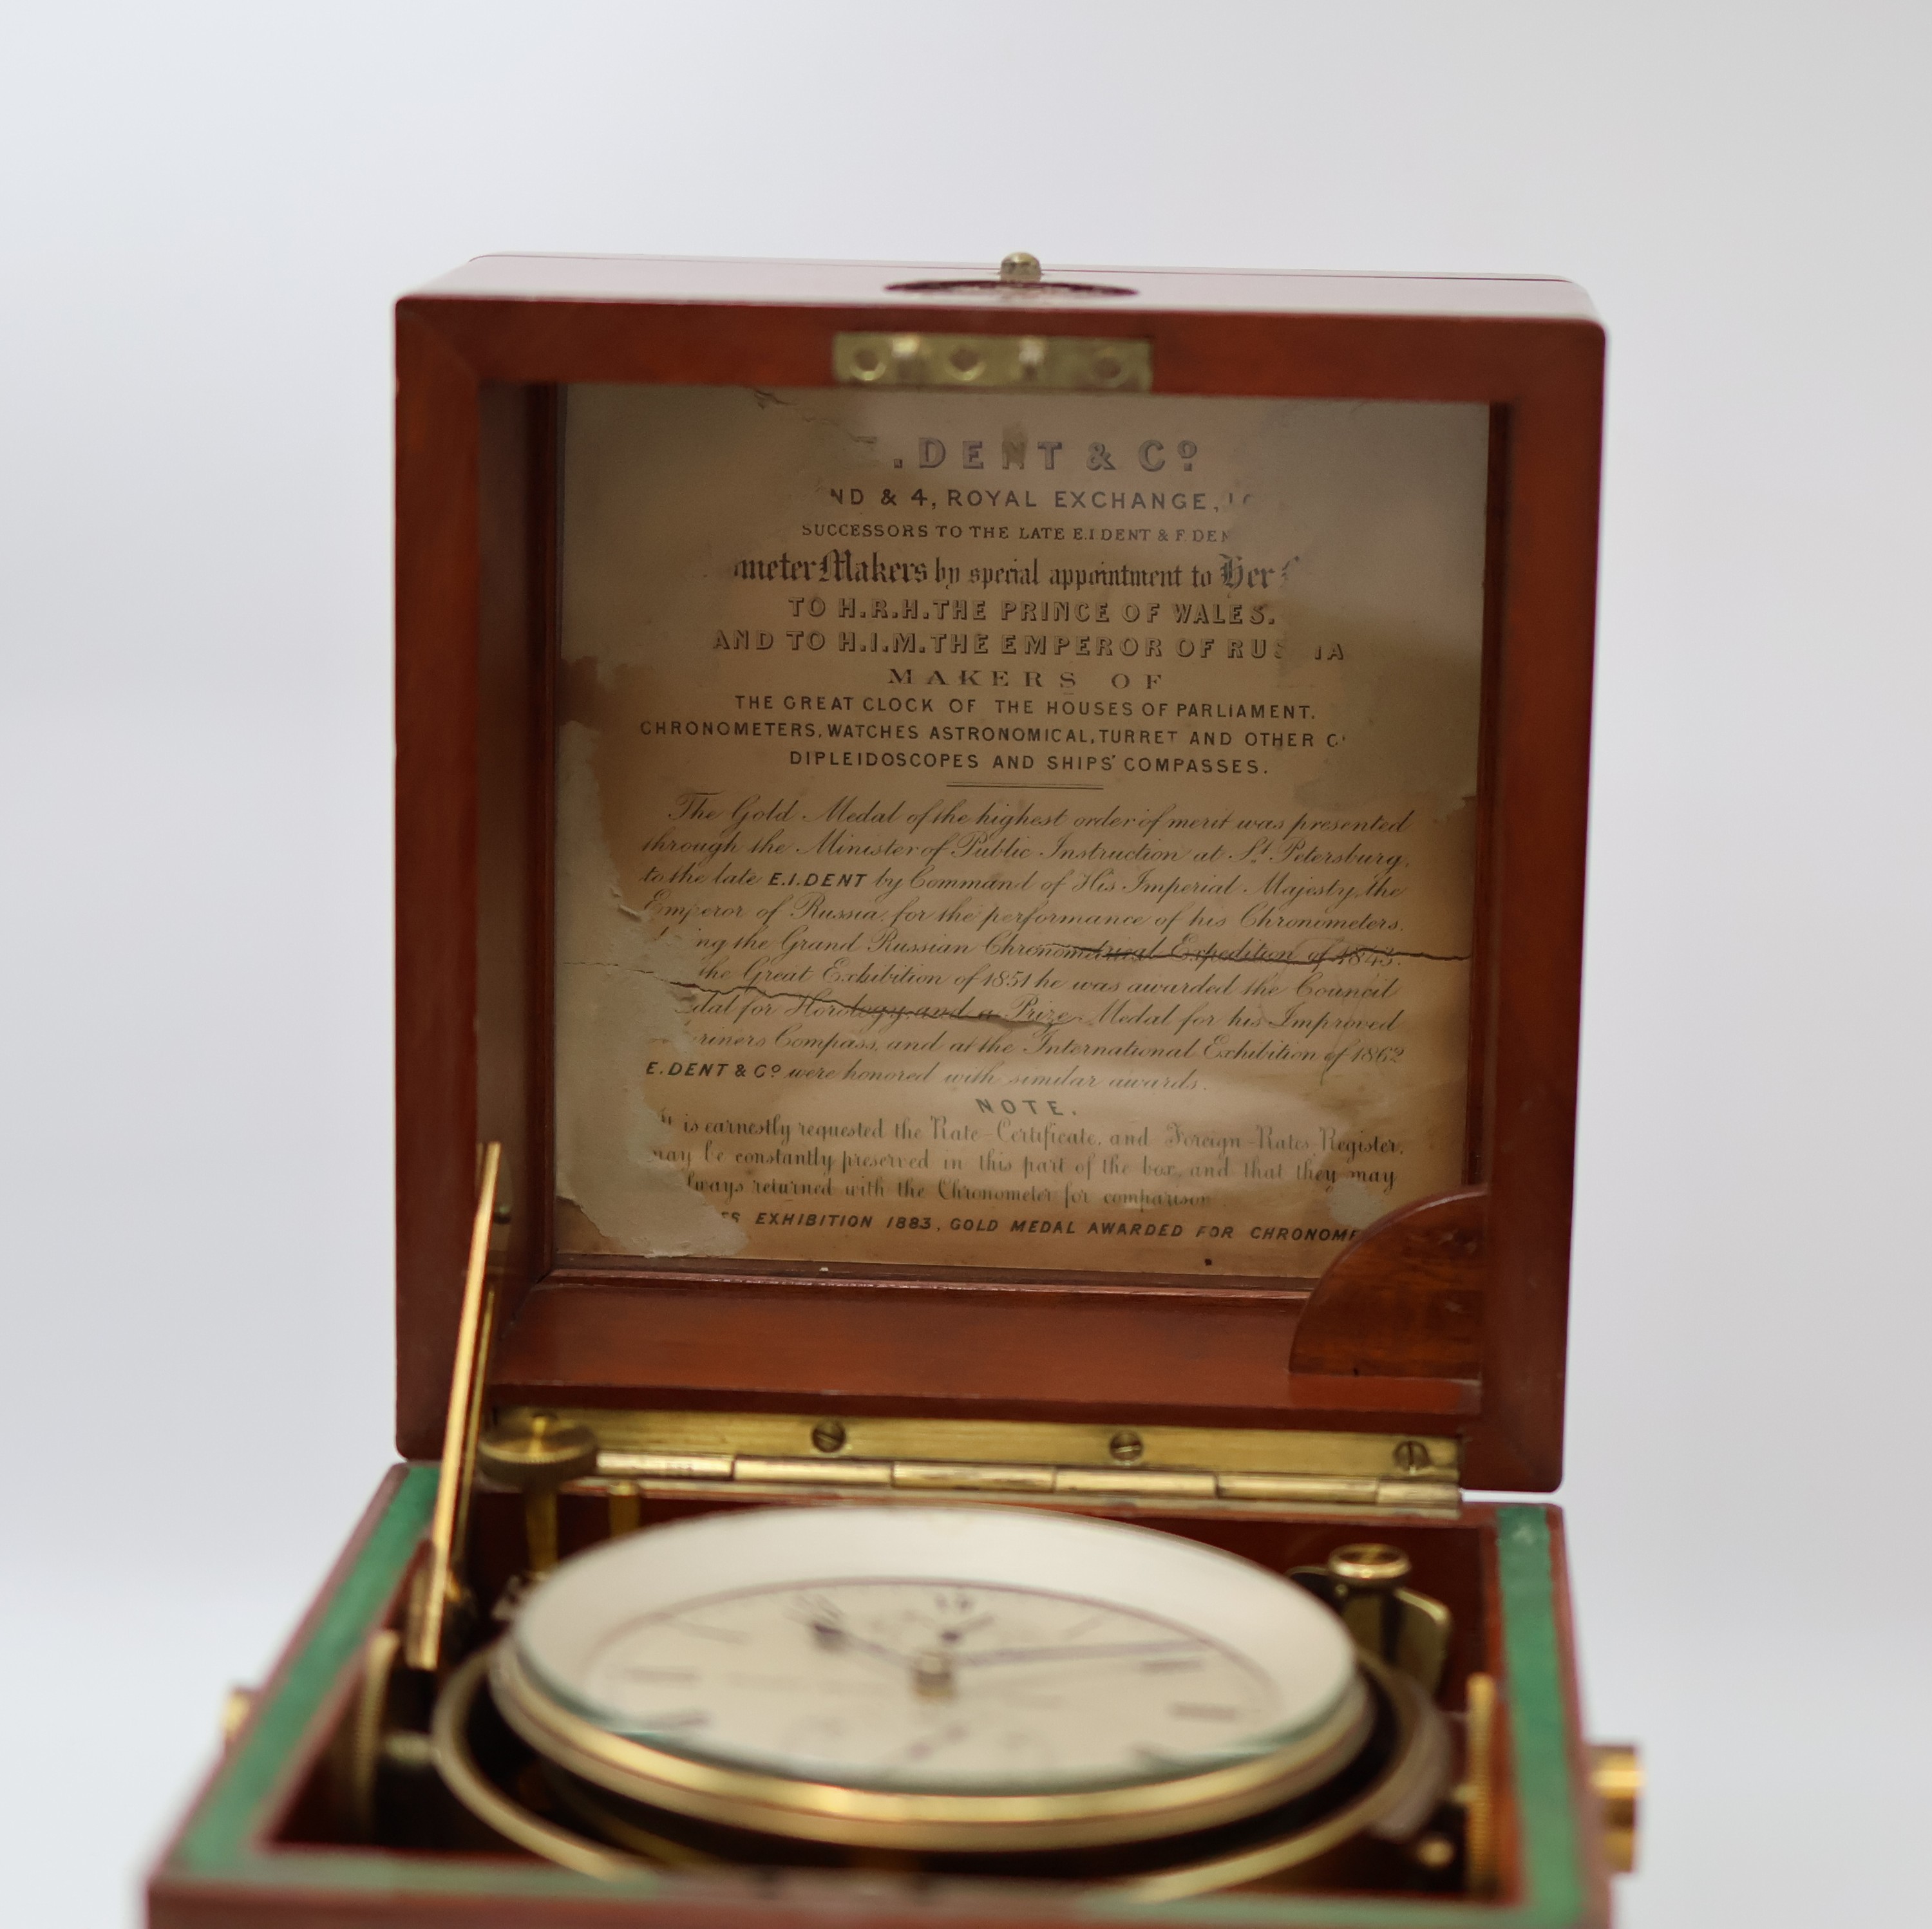 . DENT & Cº
ND & 4, ROYAL EXCHANGE,
SUCCESSORS TO THE LATE E.I DENT & F. DEN
meter Makers by special appointment to Her
TO H.R.H. THE PRINCE OF WALES.
AND TO H.I.M. THE EMPEROR OF RUS IA
MAKERS OF
THE GREAT CLOCK OF THE HOUSES OF PARLIAMENT.
CHRONOMETERS, WATCHES ASTRONOMICAL, TURRET AND OTHER C
DIPLEIDOSCOPES AND SHIPS' COMPASSES.
The Gold Medal of the highest order of merit was presented
through the Minister of Public Instruction at St. Petersburg,
to the late E.I. DENT by Command of His Imperial Majesty, the
Emperor of Russia, for the performance of his Chronometers.
ng the Grand Russian Chronometrical Expedition of 1843.
the Great Exhibition of 1851 he was awarded the Council
dal for Horology, and a Prize Medal for his Improved
riners Compass, and at the International Exhibition of 1862
E. DENT & Cº were honored with similar awards.
NOTE.
It is earnestly requested the Rate-Certificate, and Foreign-Rates-Register,
may be constantly preserved in this part of the box, and that they may
lways returned with the Chronometer for comparison
ES EXHIBITION 1883, GOLD MEDAL AWARDED FOR CHRONOME